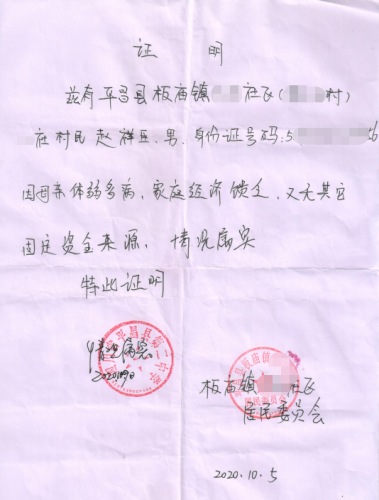 证 明
兹有平昌县板庙镇 社区( 村)
在村民赵祥 、男、身份证号码:5 6
因母亲体弱多病,家庭经济馈乏,又无其它
固定资金来源,情况属实
特此证明
情况属实
平昌县第二中学
板庙镇 社区
居民委员会
2020.10.5